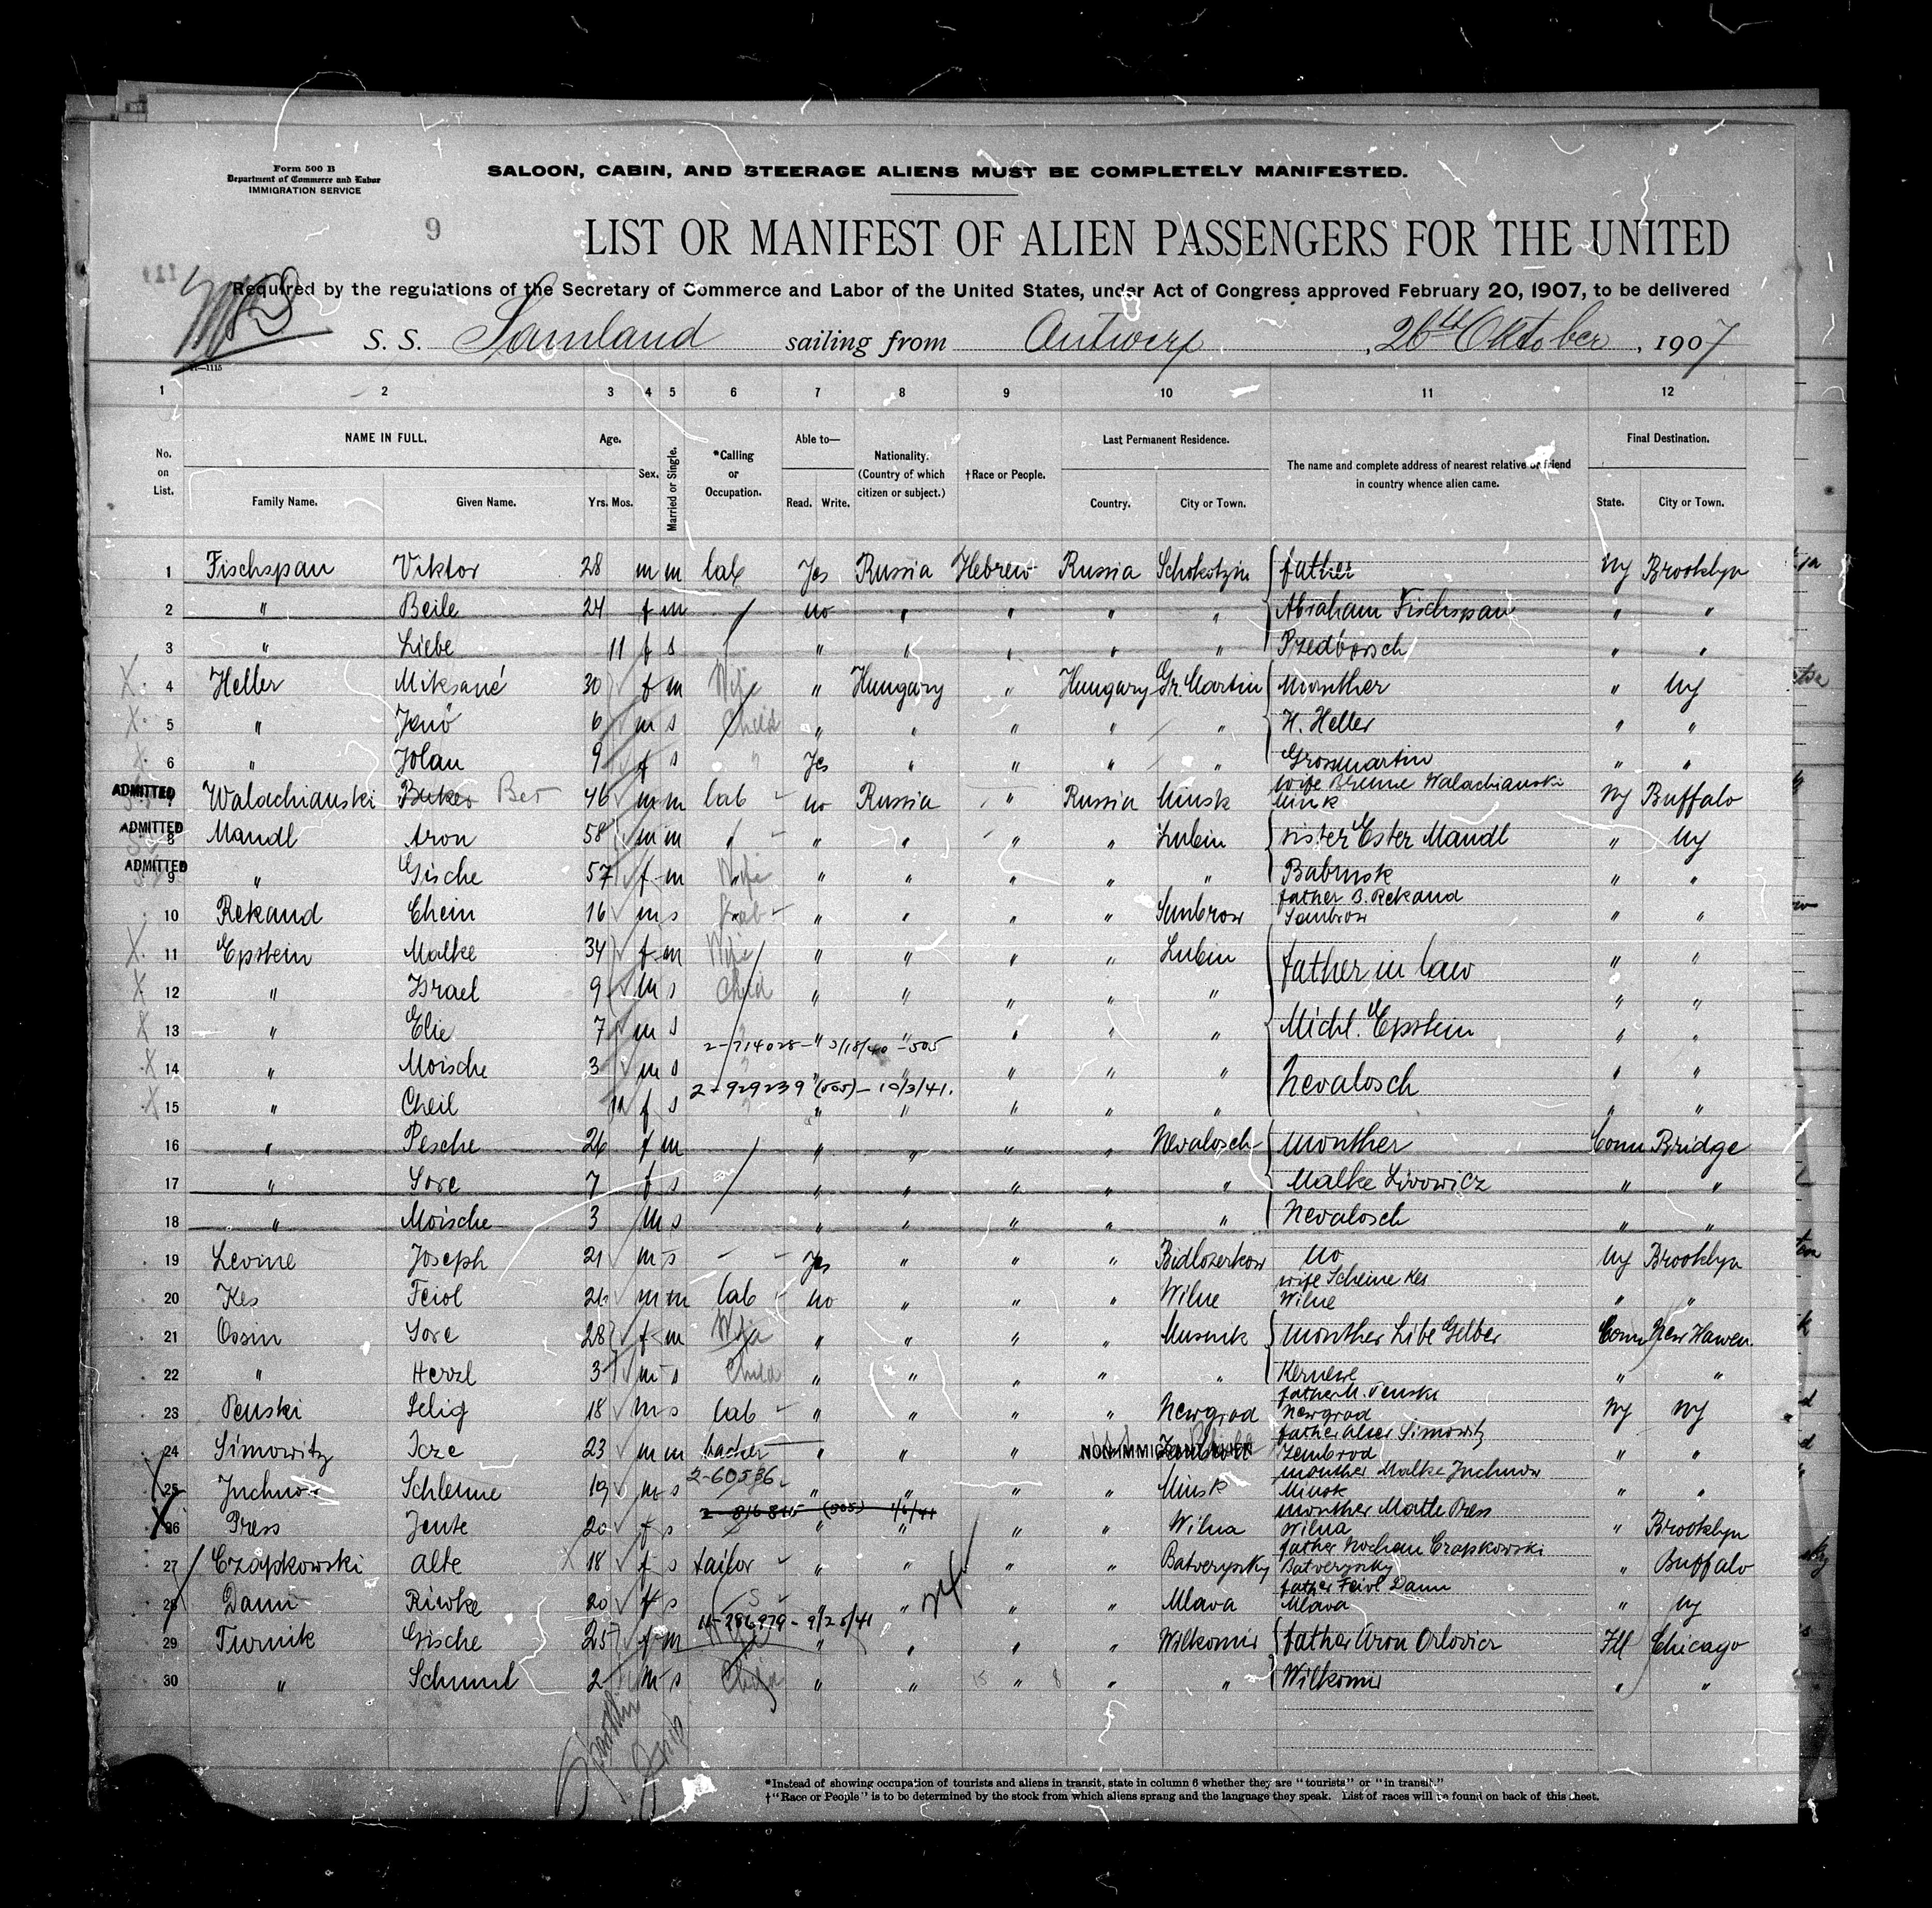 Form 500 B
Department of Commerce and Labor
IMMIGRATION SERVICE
SALOON, CABIN, AND STEERAGE ALIENS MUST BE COMPLETELY MANIFESTED.
9
LIST OR MANIFEST OF ALIEN PASSENGERS FOR THE UNITED
Required by the regulations of the Secretary of Commerce and Labor of the United States, under Act of Congress approved February 20, 1907, to be delivered
S. S. Samland sailing from Antwerp, 26th Oktober, 1907
1 2 3 4 5 6 7 8 9 10 11 12
No. on List.
NAME IN FULL.
Family Name. Given Name.
Age.
Yrs. Mos.
Sex.
Married or Single.
*Calling or Occupation.
Able to—
Read. Write.
Nationality. (Country of which citizen or subject.)
†Race or People.
Last Permanent Residence.
Country. City or Town.
The name and complete address of nearest relative or friend in country whence alien came.
Final Destination.
State. City or Town.
1 Fischspan Viktor 28 m m lab Yes Russia Hebrew Russia Schokotzin father Ny Brooklyn
2 " Beile 24 f m no " " " " Abraham Fischspan " "
3 " Liebe 11 f s " " " " " Przedborsch " "
4 Heller Miksané 30 f m Wife " Hungary " Hungary Gr. Martin monther " Ny
5 " Jenö 6 m s Child " " " " " H. Heller " "
6 " Jolan 9 f s " Yes " " " " Grossmartin " "
ADMITTED 7 Walachianski Ber 46 m m lab no Russia " Russia Minsk wife Brume Walachianski Minsk Ny Buffalo
ADMITTED 8 Mandl Aron 58 m m " " " " " Lubin sister Ester Mandl " Ny
ADMITTED 9 " Gische 57 f m Wife " " " " " Babrusk " "
10 Rekand Chein 16 m s lab " " " " Sambrow father B. Rekand Sambrow " "
11 Epstein Malke 34 f m Wife " " " " Lubin father in law " "
12 " Israel 9 m s Child " " " " " " "
13 " Elie 7 m s " " " " " Michl. Epstein " "
2-714028- 3/18/40 -505
14 " Moische 3 m s " " " " " Nevalosch " "
2-929239 (505)- 10/3/41.
15 " Cheil 11 f s " " " " " " "
16 " Pesche 26 f m " " " " Nevalosch monther Conn Bridge
17 " Sore 7 f s " " " " " Malke Livowicz " "
18 " Moische 3 m s " " " " " Nevalosch " "
19 Levine Joseph 21 m s - Yes " " " Bidlozerkow no Ny Brooklyn
20 Kes Feiol 21 m m lab no " " " Wilne wife Scheine Kes Wilne " "
21 Ossin Sore 28 f m Wife " " " " Musnik monther Libe Gelber Conn New Hawen.
22 " Herzl 3 m s Child " " " " " " "
23 Penski Selig 18 m s lab " " " " Newgrod father M. Penski Newgrod Ny Ny
24 Simowitz Icze 23 m m " " " NON-IMMIGRANT ALIEN father Alter Simowitz Zembrod " "
2-60536
25 Juchnow Schleime 19 m s " " " " Minsk monther Malke Juchnow Minsk " "
2-816815 (505) 1/6/41
26 Press Jente 20 f s " " " " Wilna monther Matle Press Wilna " Brooklyn
27 Czapkowski Alte 18 f s tailor " " " " Batverynsky father Nochem Czapkowski Batverynsky " Buffalo
28 Dann Riwke 20 f s " " " " Mlava father Feivl Dann Mlava " Ny
11-286979 - 9/25/41
29 Turnik Gische 25 f m " " " " Wilkomir father Aron Orlovicz Ill Chicago
30 " Schmul 2 m s Child " " 15 " 8 " " Wilkomir " "
*Instead of showing occupation of tourists and aliens in transit, state in column 6 whether they are "tourists" or "in transit."
†"Race or People" is to be determined by the stock from which aliens sprang and the language they speak. List of races will be found on back of this sheet.